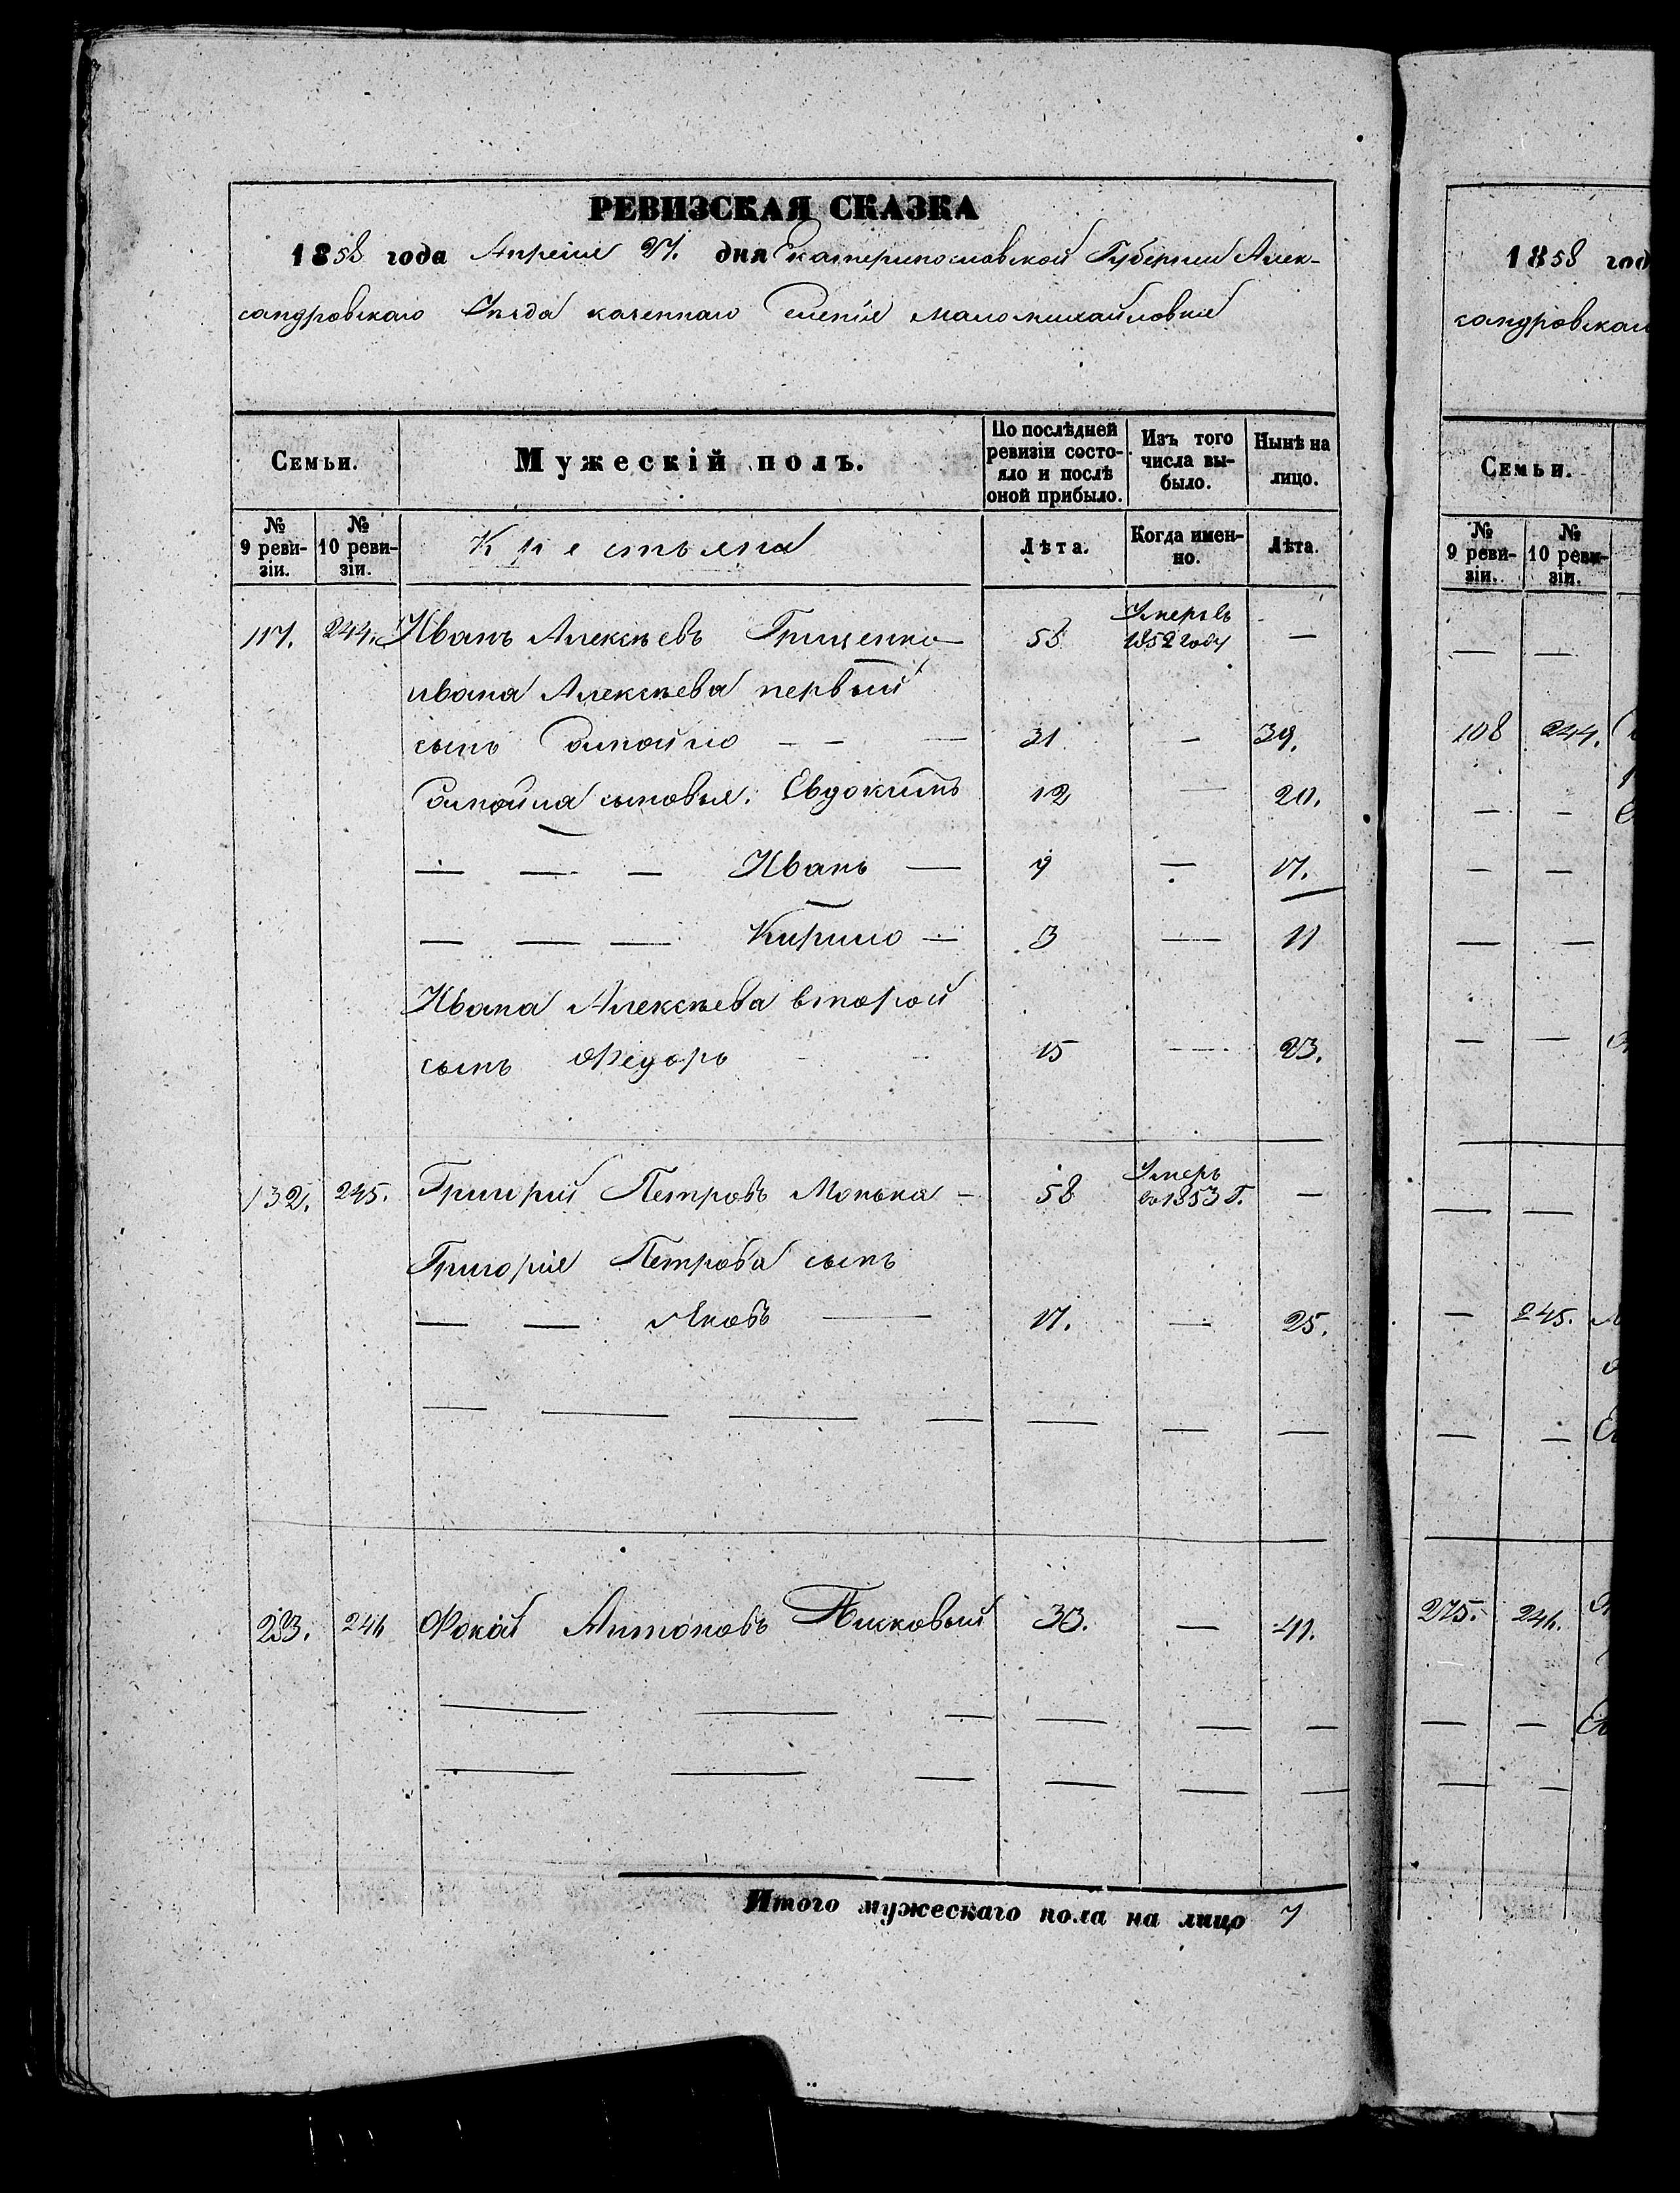 РЕВИЗСКАЯ СКАЗКА
1858 года Апреля 27. дня Екатеринославской Губернии Алек-
сандровскаго Уѣзда казеннаго Селенія маломихайловки
Семьи. Мужескій полъ. По послѣдней ревизіи состо-яло и послѣ оной прибыло. Изъ того числа вы-было. Нынѣ на лицо.
№ 9 реви-зіи. № 10 реви-зіи. Крестьяна Лѣта. Когда имен-но. Лѣта.
117. 244. Иванъ Алексѣевъ Гриценко — 58 Умеръ въ 1852 году —
ивана Алексѣева первый
сынъ Самойло — — — 31 — 39.
Самойла сыновья: Евдокимъ 12 — 20.
— — — Иванъ — 9 — 17.
— — — Кирило — 3 — 11
Ивана Алексѣева второй
сынъ Федоръ 15 — 23.
132. 245. Григорій Петровъ Монька — 58 Умеръ въ 1853 Г. —
Григорія Петрова сынъ
— — Яковъ — 17. — 25.
233. 246 Фокай Антоновъ Писковый 33. — 41.
Итого мужескаго пола на лицо 7
1858 год
сандровскаг
Семьи.
№ 9 реви-зіи. № 10 реви-зіи.
— —
108 244.
— —
— 245.
— —
275. 246.
— —